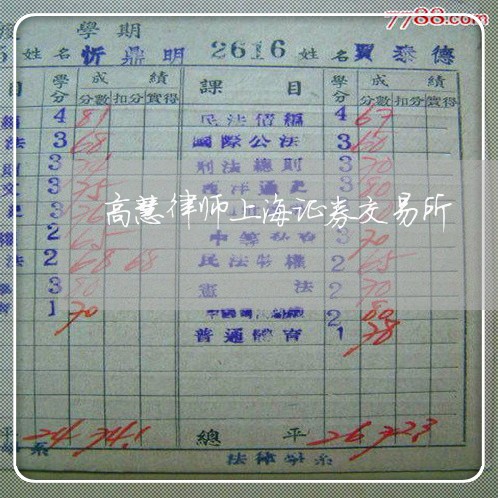 7788.com
學期
姓名 忻鼎明 2616 姓名 賈泰德
目 學分 成績 課目 學分 成績
分數 扣分 實得 分數 扣分 實得
4 81 民法債編 4 67
法 3 68 國際公法 3 60
3 刑法總則 3 70
3 75 西洋通史 3 80
3
高慧律师上海证券交易所
2 65 3 70
法 2 68 68 民法物權 2 65
3 80 憲法 2 70
1 70 2 80
普通體育 1 78
平 24 74.1 總平 26 72.3
系 法律學系